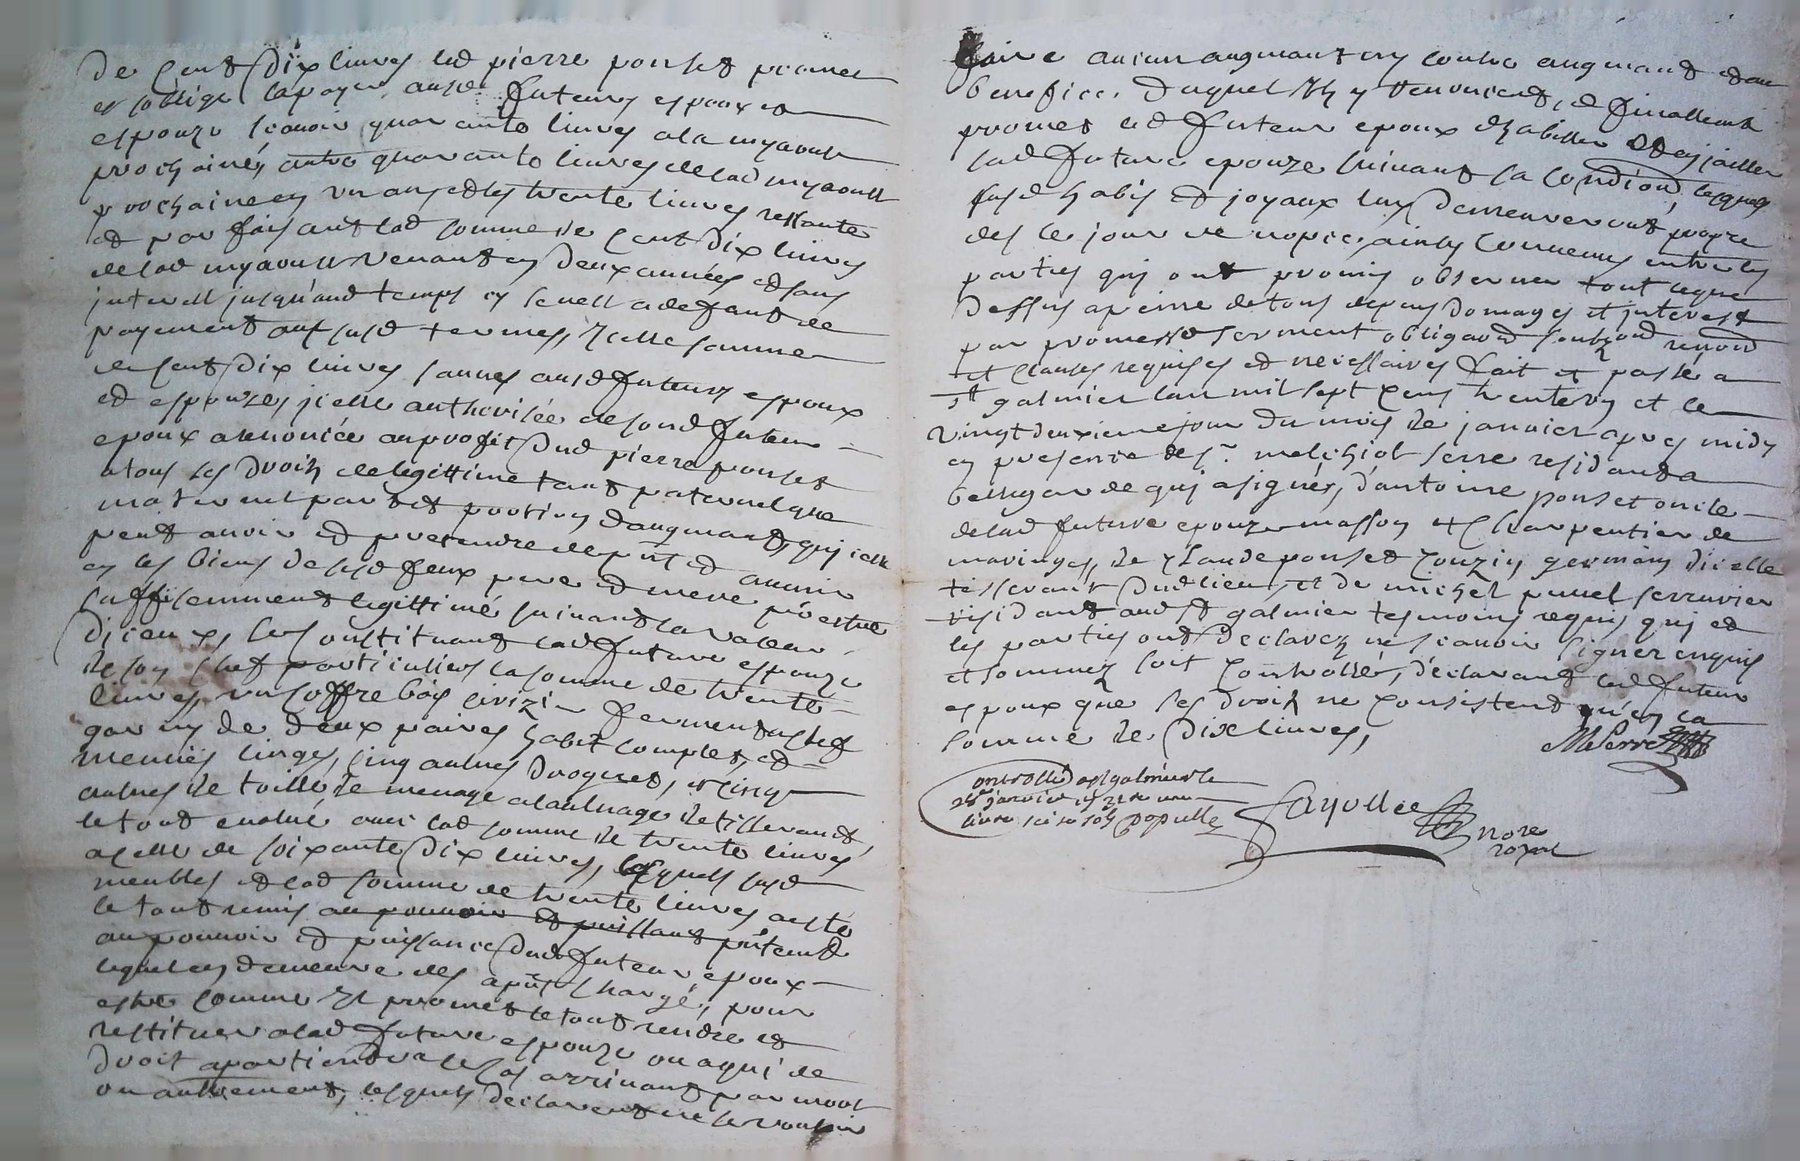 de cent dix livres led pierre ponset promet
et soblige la payer ausd futeurs espoux et
espouze scavoir quarante livres a la myaoust
prochaines, autre quarante livres de lad myaoust
prochaine en un an et les trente livres restante
et parfaisant lad somme de cent dix livres
de lad myaoust venant en deux années et sans
interest jusqu'aud temps en seuell a defaut de
payement aux susd termes, Icelle somme
de cent dix livres sauves ausd futeurs espoux
et espouzes, icelle authorisée de sond futeur
epoux a renoncée au profit dud pierre ponset
a tous ses droits de legittime tant paternel que
maternel part et portion d'augmant, qui icelle
peut avoir et pretendre de pnt et advenir
en les biens de sesd feux pere et mere pr estre
suffisemment legittimé suivant la valeur
diceux, se constituant lad future espouze
de son chef particulier la somme de trente
livres, un coffre bois cerizier fermant a clef
garny de deux paires habit complet, et
menues linges, cinq aulnes droguet, et cinq
aulnes de toille de menage a laulnage de tisserand,
le tout evalué avec lad somme de trente livres
a celle de soixante dix livres, lesquels susd
meubles et lad somme de trente livres a esté
le tout remis au pouvoir et puissant pntement
au pouvoir et puissance dud futeur epoux
lequel en demeure des apnt chargé, pour
estre comme Il promet le tout rendre et
restituer a lad future espouze ou a qui de
droit apartiendra le cas arrivant par mort
ou autrement, lesquels declarent ne se vouloir
faire aucun augmant ny contre augmant et au
benefice duquel Ils y renoncent, et finallement
promet led futeur epoux dhabiller et enjailler
lad future epouze suivant sa condion, lesquels
susd habis et joyaux luy demeureront propre
des le jour de nopce, ainsy convenus entre les
parties qui ont promis observer tout ce que
dessus a peine de tous depens domages et interest
par promesse serment obligaon soubzon renon
et clauses requises et necessaires fait et passé a
st galmier lan mil sept cens trente un et le
vingt deuxieme jour du mois de janvier apres midy
en presence de sr melchiol serre residant a
bellegarde qui a signer, d'antoine ponset oncle
de lad future epouze masson et charpentier de
maringes, de claude ponset couzin germain dicelle
tisserant dud lieu, et de michel punel serrurier
residant aud st galmier tesmoins requis qui et
les parties ont declarez ne scavoir signer enquis
et sommez soit controllé, declarant led futeur
espoux que ses droits ne consistent qu'en la
somme de dix livres,
MelSerre
controllé a st galmier le
28e janvier 1731 Re une
livre seise sols populle
Fayolle
nore
royal